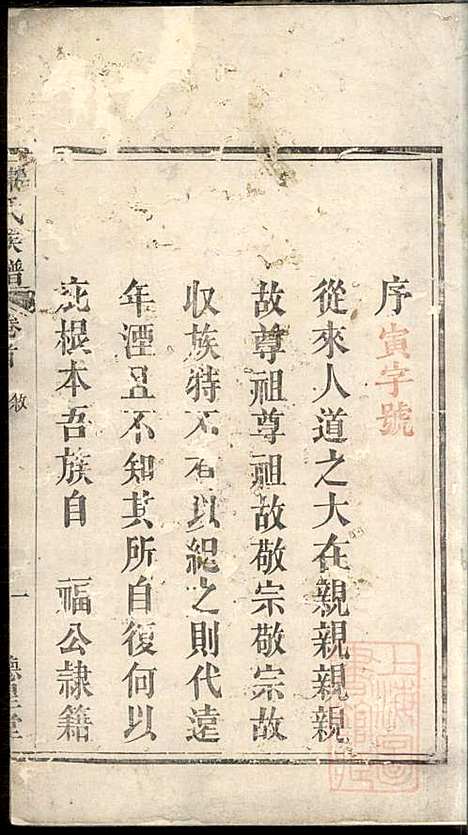 序
寅字號
從來人道之大在親親親親
故尊祖尊祖故敬宗敬宗故
收族特不有以紀之則代遠
年湮且不知其所自復何以
庇根本吾族自 福公隷籍
氏族譜
卷首
敘
一
堂
上海圖書館藏